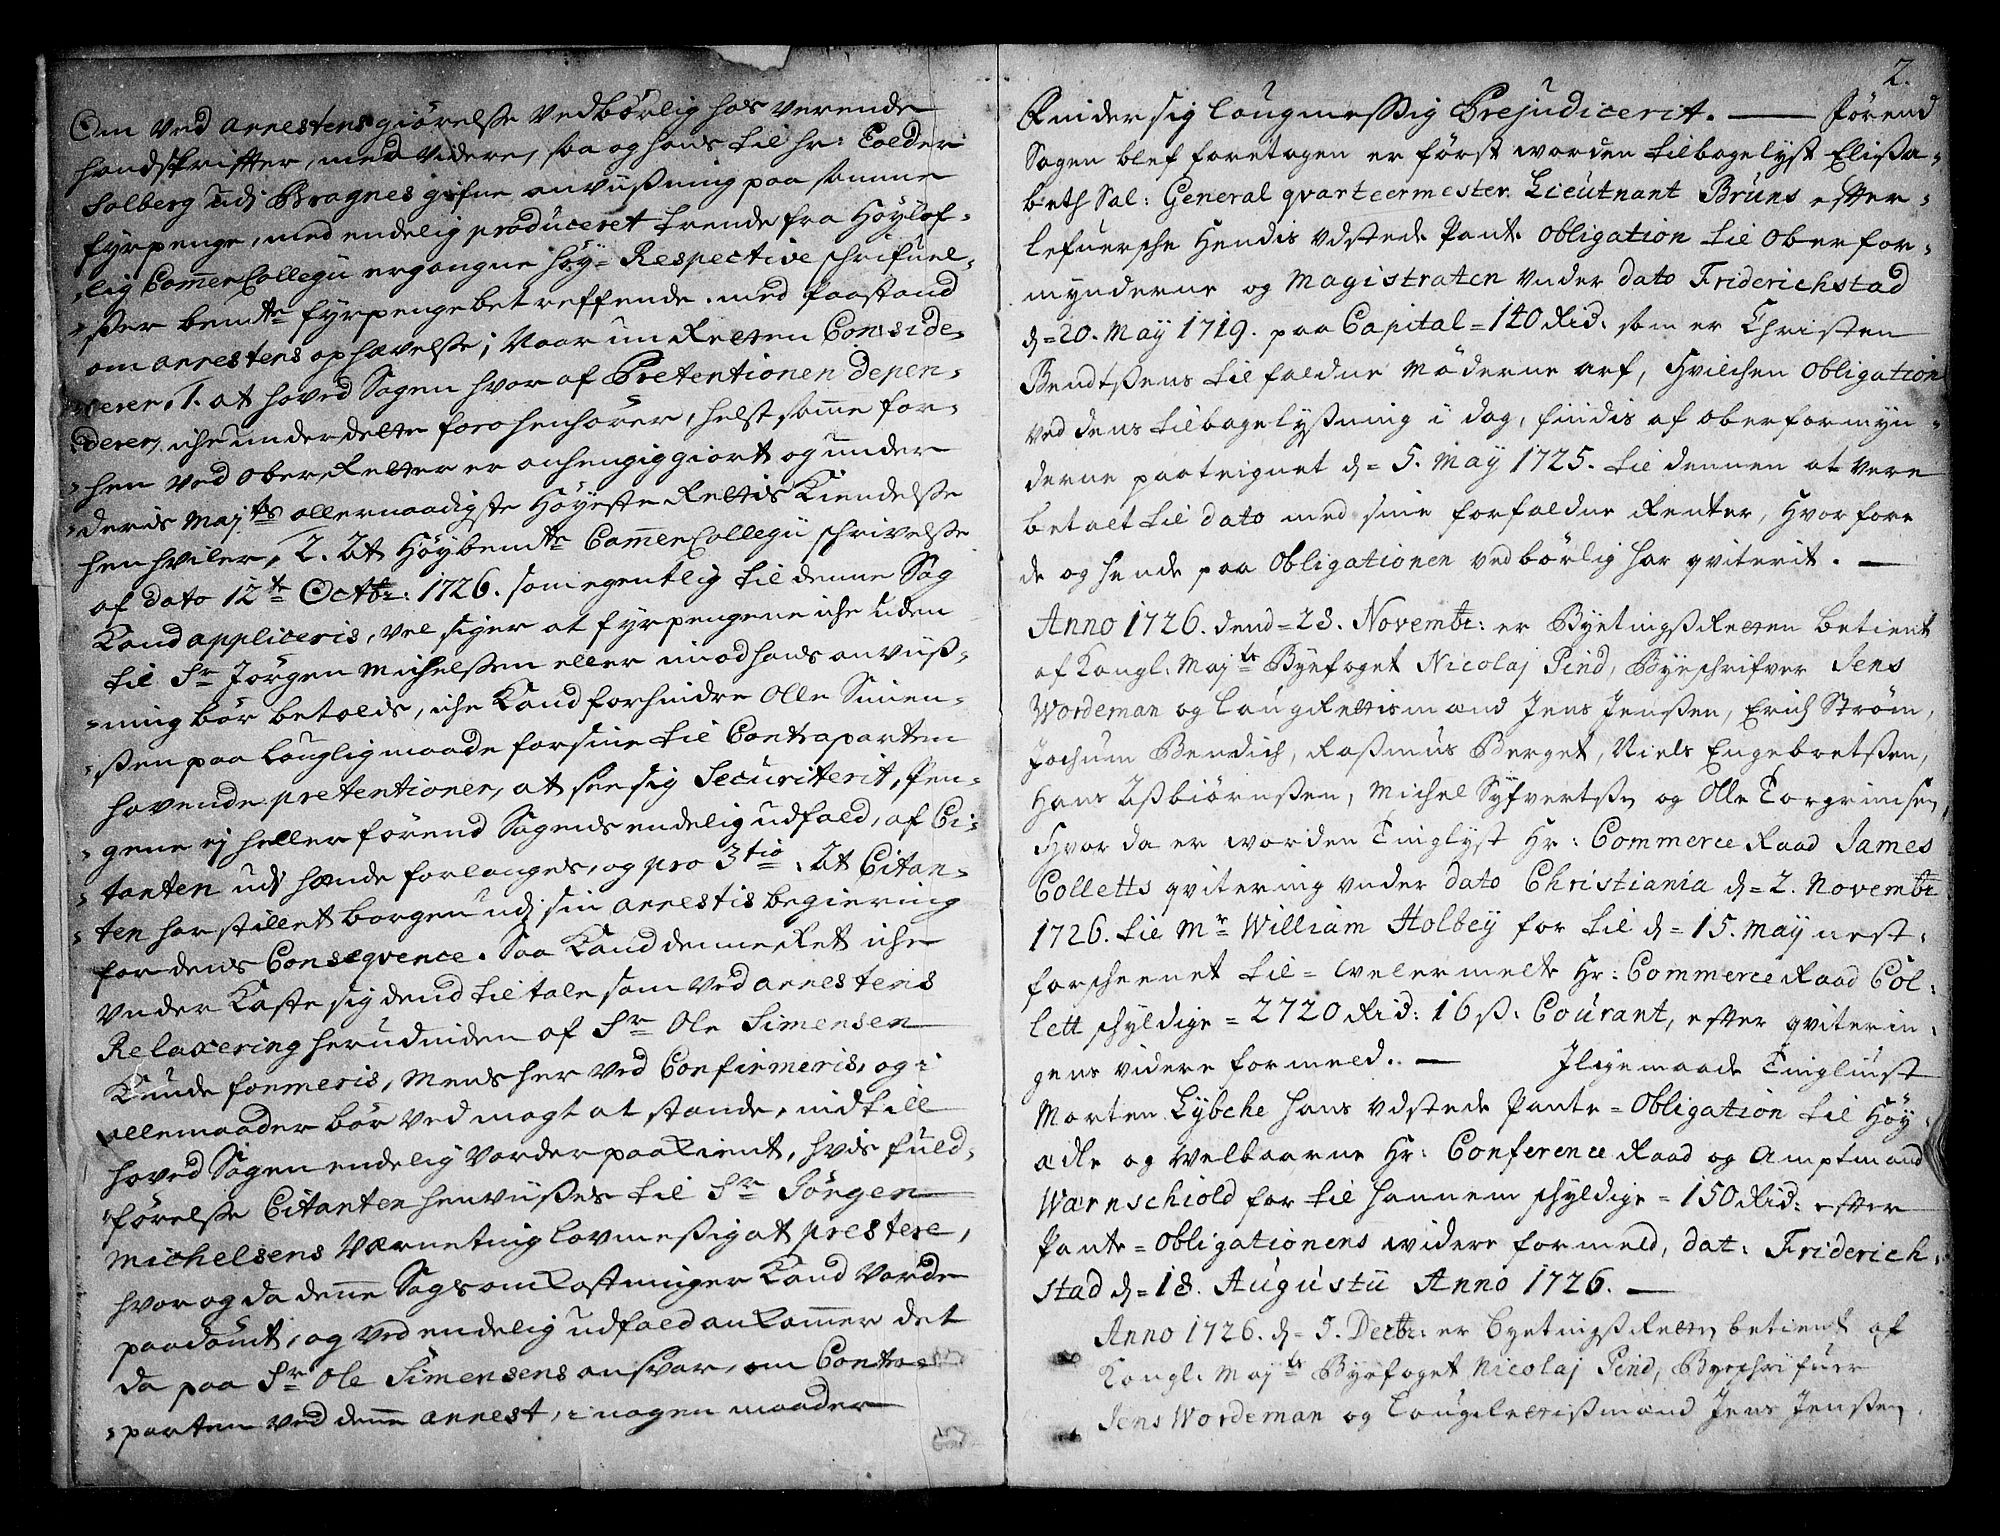 Om ved arrestens giörelsse vedbörlig hos verende
handskriffter, med videre, saa og hans til hr: Colder
Solberg udj Bragnes gifne anviißning paa samme
fyrpenge, med endelig produceret trende fra Höylof-
-lig Cam̅er Collegii ergangne höy- Respective schrifuel-
-ßer bemte fyrpenge betreffende. med paastand
om arrestens ophævelse; Naar nu Retten Conside-
rerer. 1. at hoved Sagen hvor af Prætentionen depen-
derer, iche under dette foro henhörer, helst sam̅e for-
hen ved Ober Retten er anhengiggiort og under
deris Majts allernaadigste Höyeste Rettis Kiendelsse
henhviler, 2. At Höybemte Cam̅er Collegii schrivelsse
af dato 12te Octbr: 1726. som egentlig til denne Sag
Kand appliceris, vel siger at fyrpengene iche uden
til Sr Jörgen Michelssen eller imod hans anviiß-
-ning bör betalis, iche Kand forhindre Olle Simen-
-ßen paa louglig maade for sine til Contraparten
havende pretentioner, at see sig Securiterit, Pen-
-gene ej heller förend Sagens endelig udfald, af Ci-
-tanten udj hænde forlanges, og pro 3tio. At Citan-
-ten har stillet borgen udj sin arrestis begiering
for dens Conseqvence. Saa Kand denne Ret iche
under Kaste sig dend tiltale som ved arrestens
Relaxering herudinden af Sr Ole Simensen
Kunde formeris, mens her ved Confirmeris, og i
allemaader bör ved magt at stande, indtill
hoved Sagen endelig vorder paakient, hvis fuld-
förelsse Citanten henviißes til Sr Jörgen
Michelsens Værneting lovmeßig at prestere,
hvor og da den̅e Sags omkostninger Kand vorde
paadömt, og ved endelig udfald ankom̅er det
da paa Sr Ole Simensens ansvar, om Contra-
-parten ved den̅e arrest, i nogen maader
2.
Finder sig lougmessig Prejudicerit. — Förend
Sagen blef foretagen er först worden tilbagelyst Elißa-
beth Sal: General qvarteermester Lieutnant Bruns effter-
lefuersche Hendis udstede Pant Obligation til Oberfor-
mynderne og Magistraten under dato Friderichstad
d= 20. May 1719. paa Capital = 140 Rid. som er Christen
Bendtßens tilfaldne Möderne arf, Hvilchen Obligation
ved dens tilbagelyßning i dag, findis af oberformyn-
derne paateignet d= 5. May 1725. til dennem at vere
betalt til dato med sine forfaldne Renter, Hvorfore
de og hende paa Obligationen vedbörlig har qviterit. —
Anno 1726. dend= 28. Novembr: er Byetingß Retten betient
af Kongl: Majts Byefoget Nicolaj Pind, Byeschrifver Jens
Wordeman og LaugRettismænd Jens Jenßen, Erich Ström,
Jochum Bendich, Raßmus Berget, Niels Engebretßen,
Hans Aßbiörnßen, Michel Syfvertßn og Olle Torgrimsen,
Hvor da er worden Tinglyst Hr: Commerce Raad James
Colletts qvitering under dato Christiania d= 2. Novembr
1726. til Mr William Holbey for til d= 15. May nest-
forscheenet til= welermelte Hr: Commerce Raad Col-
lett schyldige = 2720 Rid: 16 ß. Courant, effter qviterin-
gens videre formeld. — Iligemaade Tingliust
Morten Lybche hans udstede Pante= Obligation til Höy
ædle og Welbaarne Hr: Conference Raad og Amptmand
Wærnschiold for til hannem schyldige = 150 Rid: effter
Pante= Obligationens widere formeld, dat: Friderich-
stad d= 18. Augustii Anno 1726. —
Anno 1726. d= 5. Decbr: er Byetingß Retten betient af
Kongl: Majts Byefoget Nicolaj Pind, Byeschrifuer
Jens Wordeman og LaugRettißmænd Jens Jenßen,